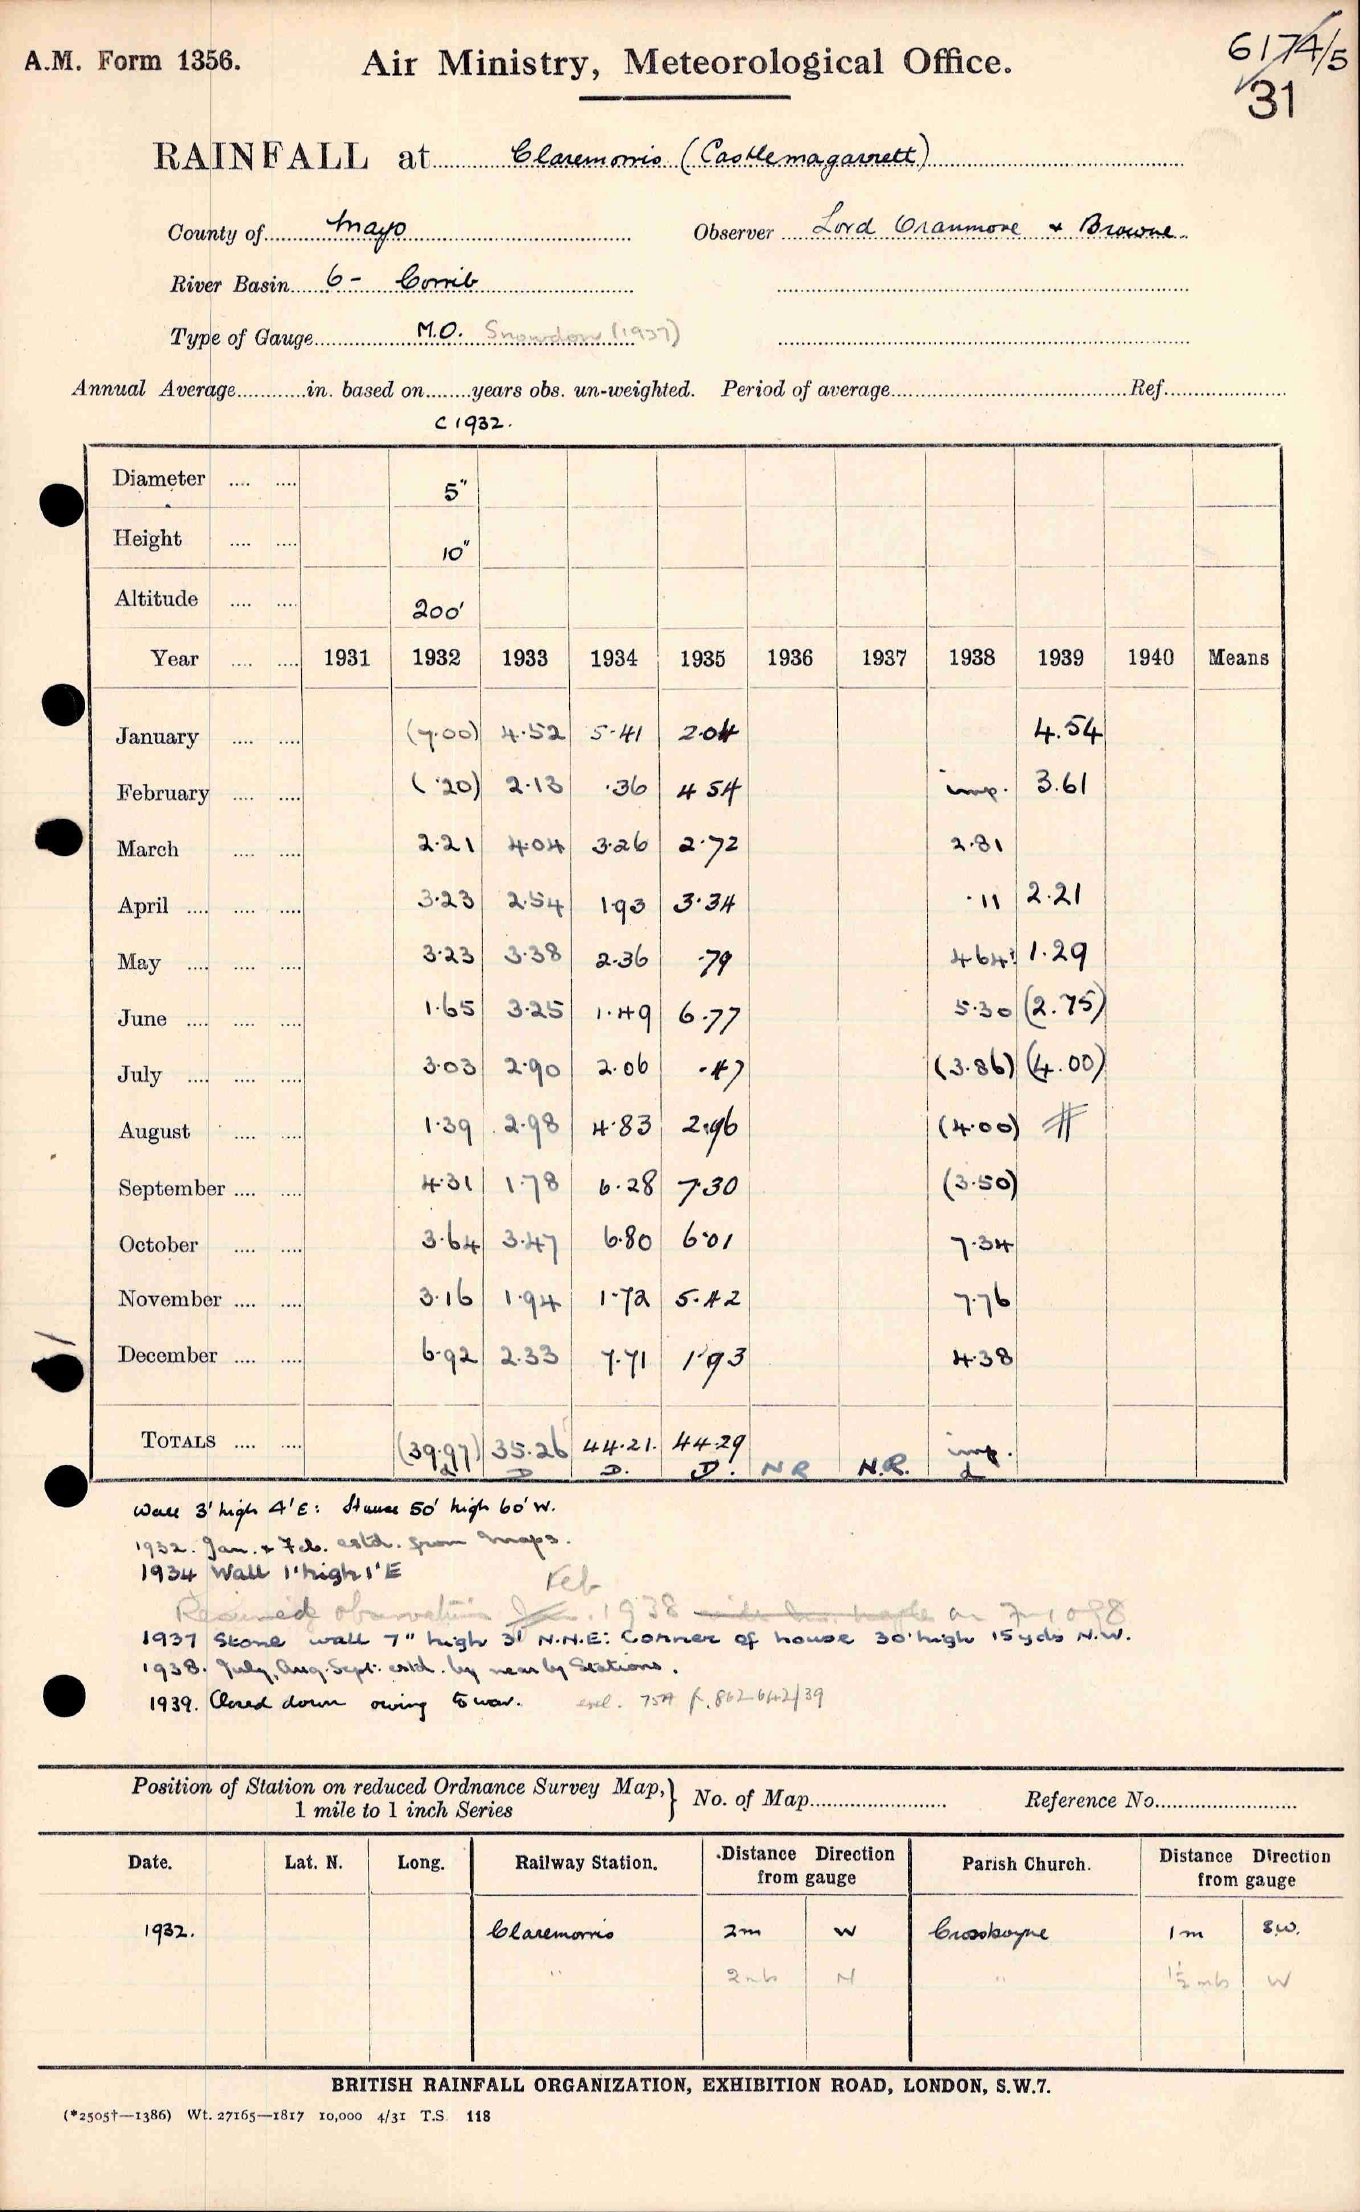 A.M. Form 1356.
Air Ministry, Meteorological Office.
6174/5
31
RAINFALL at Claremorris (Castlemagarrett)
County of Mayo Observer Lord Oranmore & Browne
River Basin 6 - Corrib
Type of Gauge M.O. Snowdon (1937)
Annual Average in. based on years obs. un-weighted. Period of average Ref.
C 1932.
Diameter 5"
Height 10"
Altitude 200'
Year 1931 1932 1933 1934 1935 1936 1937 1938 1939 1940 Means
January (7.00) 4.52 5.41 2.04 4.54
February (.20) 2.13 .36 4 54 imp. 3.61
March 2.21 4.04 3.26 2.72 2.81
April 3.23 2.54 1.93 3.34 .11 2.21
May 3.23 3.38 2.36 .79 4.64? 1.29
June 1.65 3.25 1.49 6.77 5.30 (2.75)
July 3.03 2.90 2.06 .47 (3.86) (4.00)
August 1.39 2.98 4.83 2.96 (4.00) #
September 4.31 1.78 6.28 7.30 (3.50)
October 3.64 3.47 6.80 6.01 7.34
November 3.16 1.94 1.72 5.42 7.76
December 6.92 2.33 7.71 1.93 4.38
TOTALS (39.97) 35.26 44.21. 44.29 imp.
d D D. D. N R N.R. d
Wall 3' high 4' E: House 50' high 60' W.
1932. Jan. & Feb. estd. from Maps.
1934 Wall 1' high 1' E
Feb
Resumed observations Jan. 1938 on
1937 Stone wall 7" high 3' N.N.E: Corner of house 30' high 15yds N.W.
1938. July, Aug. Sept. estd. by near by Stations.
1939. Closed down owing to war. 75A f. 862642/39
Position of Station on reduced Ordnance Survey Map, 1 mile to 1 inch Series } No. of Map Reference No.
Date. Lat. N. Long. Railway Station. Distance Direction from gauge Parish Church. Distance Direction from gauge
1932. Claremorris 2m W Crossboyne 1m S.W.
" 2 mls N " 1½ mls W
BRITISH RAINFALL ORGANIZATION, EXHIBITION ROAD, LONDON, S.W.7.
(*2505†—1386) Wt. 27165—1817 10,000 4/31 T.S. 118